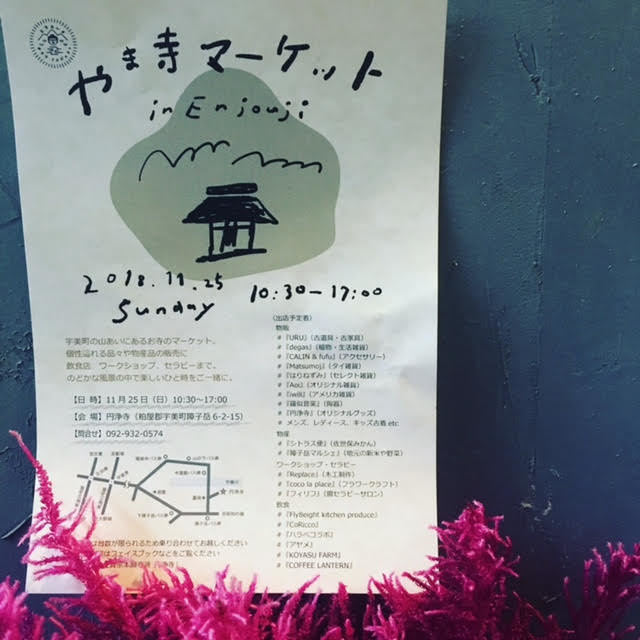 やま寺マーケット
in Enjouji
2018.11.25
Sunday
10:30-17:00
宇美町の山あいにあるお寺のマーケット。
個性溢れる品々や物産品の販売に
飲食店 ワークショップ、セラピーまで、
のどかな風景の中で楽しいひと時をご一緒に。
【日 時】11月25日（日）10:30〜17:00
【会 場】円浄寺（粕屋郡宇美町障子岳 6-2-15）
【問合せ】092-932-0574
円浄寺
台数が限られるため乗り合わせてお越しください
はフェイスブックなどをご覧ください
〈出店予定者〉
物販
#『URU』（古道具・古家具）
#『degas』（植物・生活雑貨）
#『CALIN & fufu』（アクセサリー）
#『Matsumoj』（タイ雑貨）
#『はりねずみ』（セレクト雑貨）
#『Aoi』（オリジナル雑貨）
#『iwaki』（アメリカ雑貨）
#（陶器）
#『円浄寺』（オリジナルグッズ）
# メンズ、レディース、キッズ古着 etc
物産
#『シトラス便』（佐世保みかん）
#『障子岳マルシェ』（地元の新米や野菜）
ワークショップ・セラピー
#『Replace』（木工制作）
#『coco la place』（フラワークラフト）
#『フィリフ』（眉セラピーサロン）
飲食
#『FlyBeight kitchen produce』
#『CoRicco』
#『ハラペコラボ』
#『アヤメ』
#『KOYASU FARM』
#『COFFEE LANTERN』